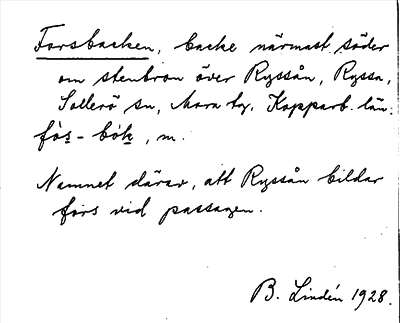 Forsbacken, backe närmast söder
om stenbron över Ryssån, Ryssa,
Sollerö sn, Mora tg, Kopparb. län.
fòs - bók, m.
Namnet därav, att Ryssån bildar
fors vid passagen.
B. Lindén 1928.